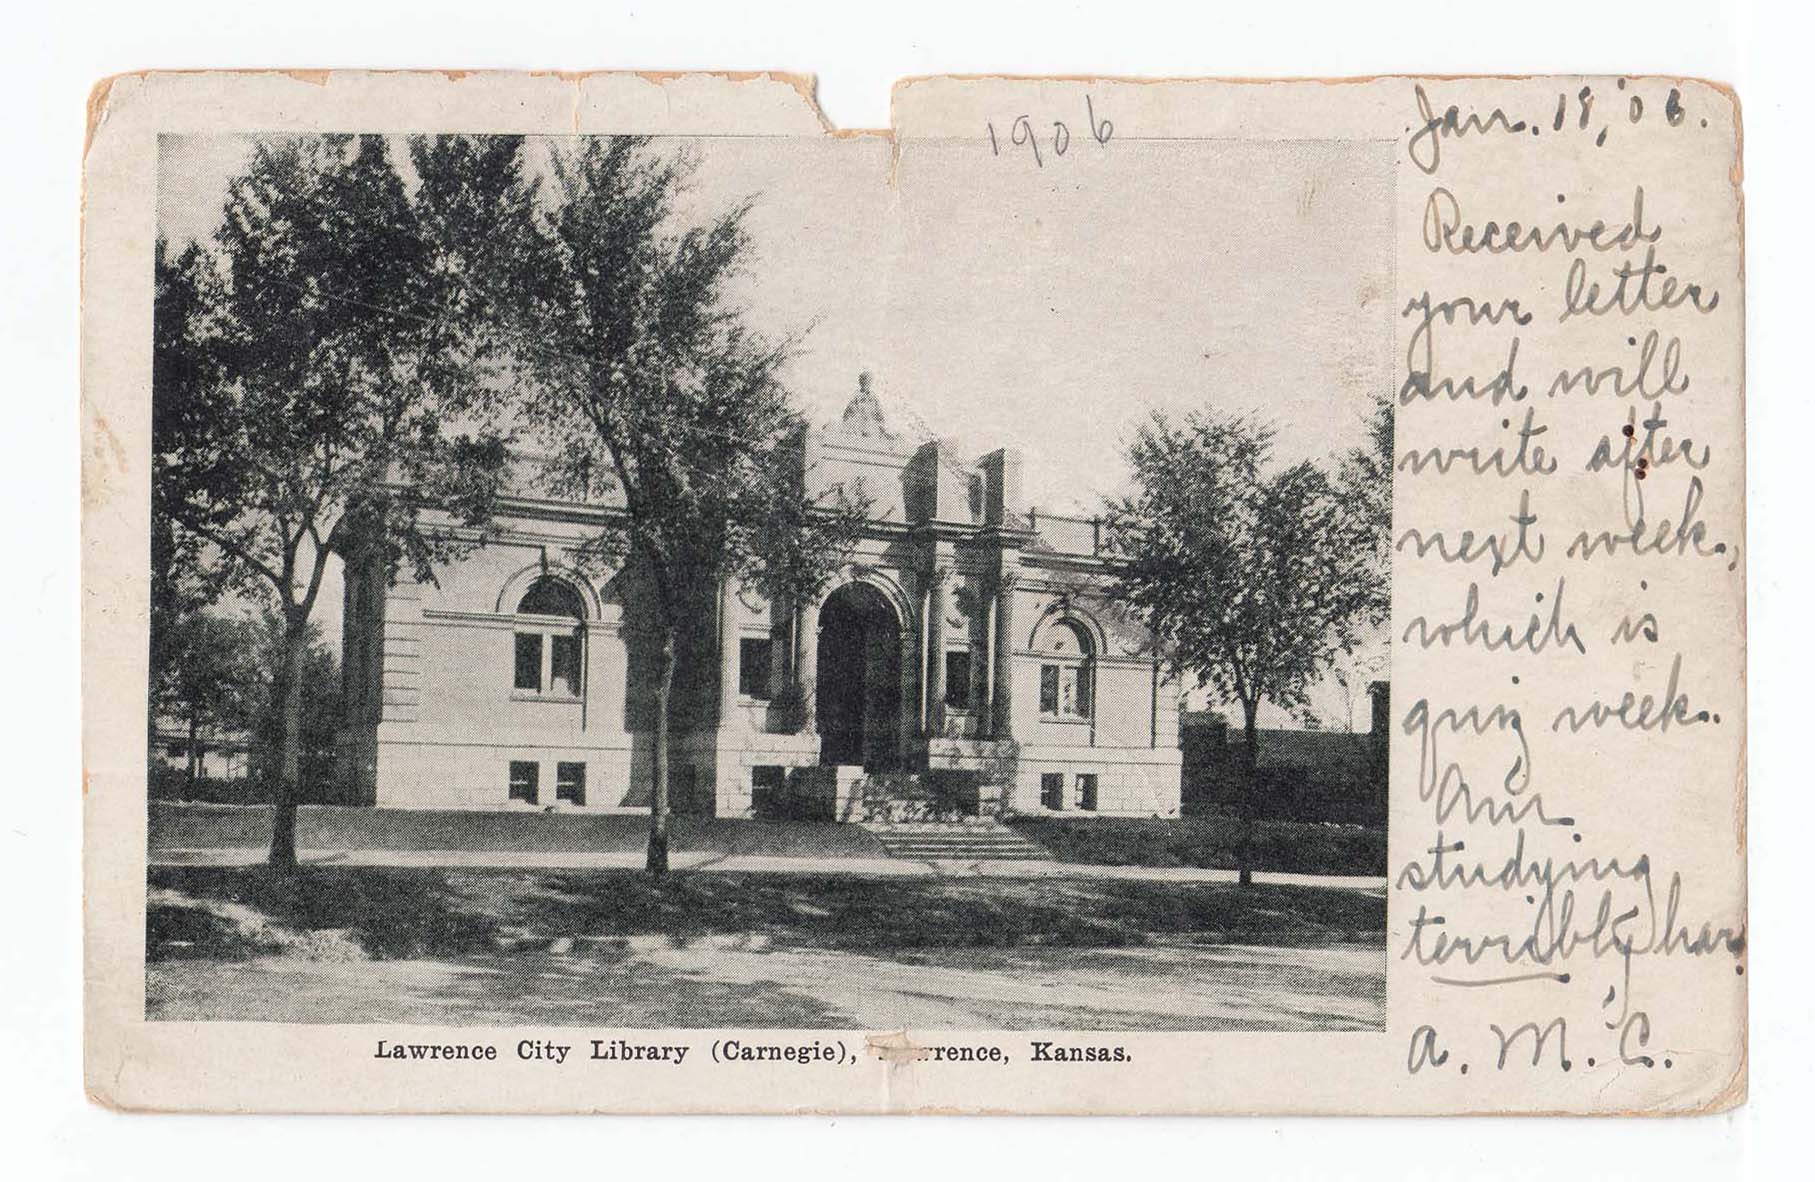 1906
Jan. 18, '06.
Received
your letter
and will
write after
next week,
which is
quiz week.
Am
studying
terribly har
A. M. C.
Lawrence City Library (Carnegie), rrence, Kansas.